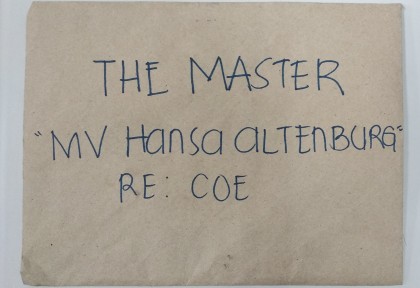 THE MASTER
"MV Hansa ALTENBURG"
RE: COE